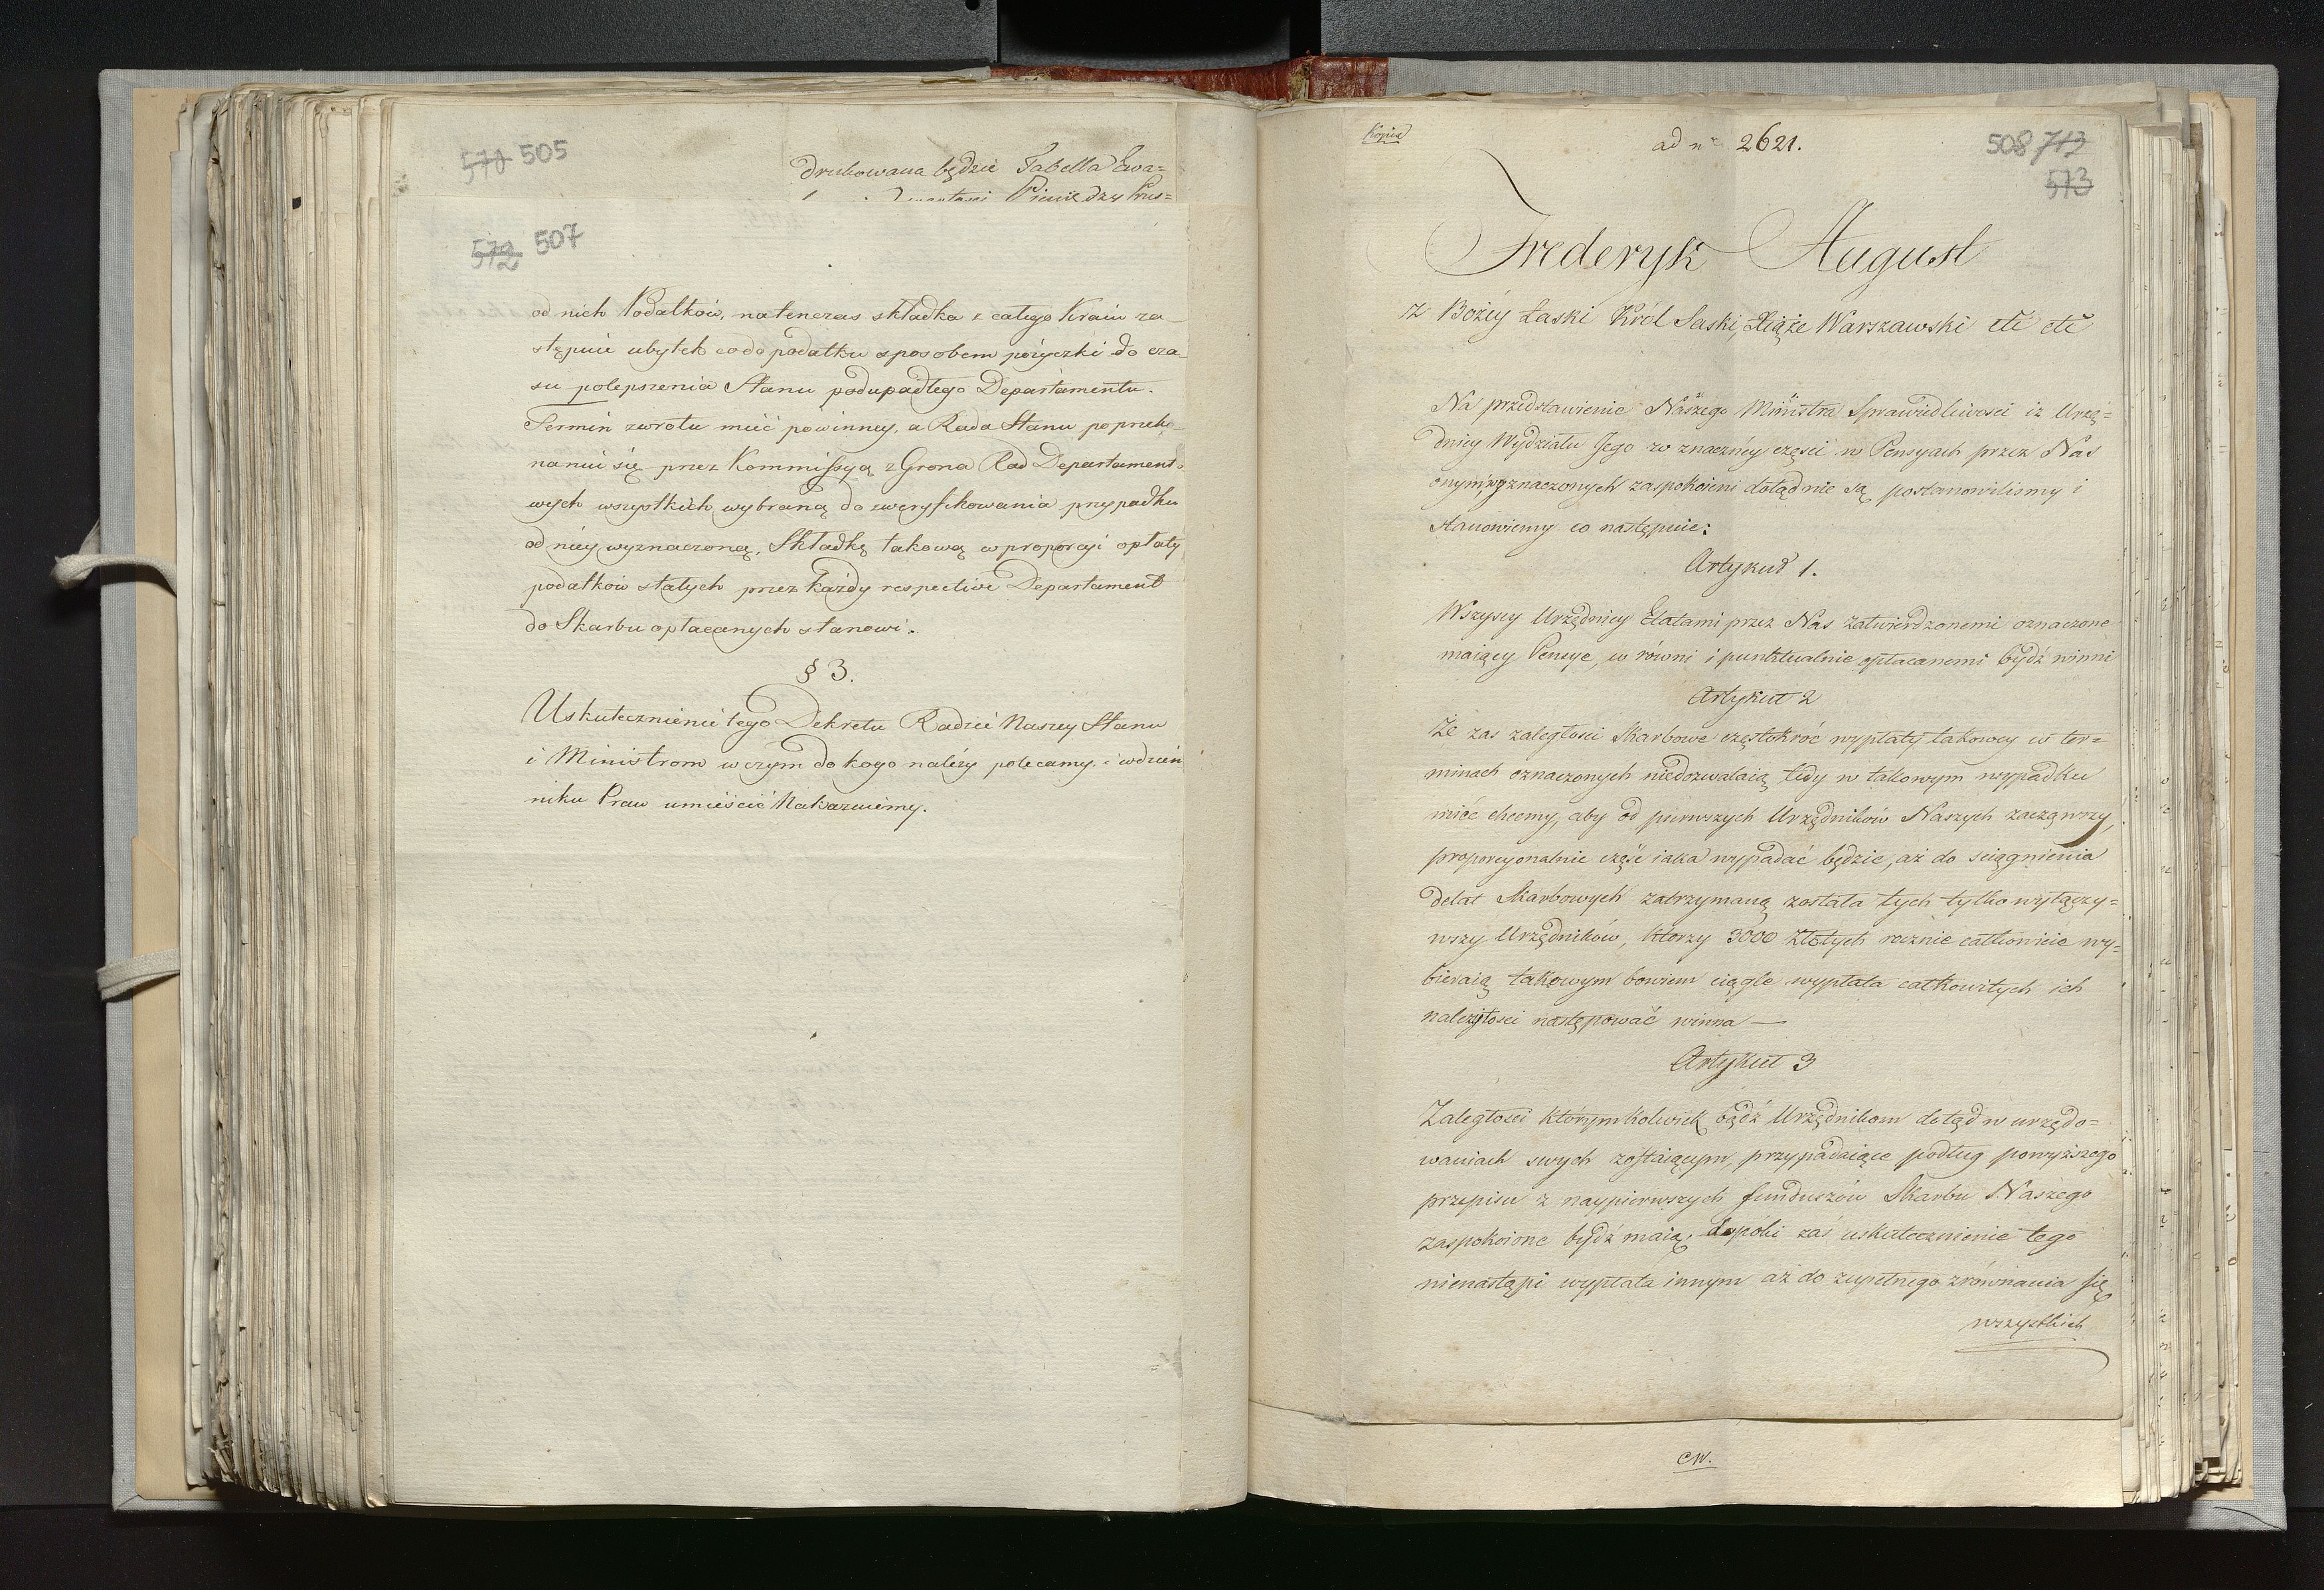 570 505
drukowana będzie Tabella Ewa=
Pieniędzy Prus=
572 507
od nich Podatków, natenczas składka z całego Kraiu za-
stępuie ubytek co do podatku sposobem pożyczki do cza-
su polepszenia Stanu podupadłego Departamentu.
Termin zwrotu mieć powinney, a Rada Stanu po przeko-
naniu się przez Kommissyą z Grona Rad Departamento-
wych wszystkich wybraną do zweryfikowania przypadku
od niey wyznaczoną, Składkę takową w proporcyi opłaty
podatków stałych przez każdy respective Departament
do Skarbu opłacanych stanowi.
§ 3.
Uskutecznienie tego Dekretu Radzie Naszey Stanu
i Ministrom w czym do kogo należy polecamy, i w dzien
niku Praw umieścić Nakazuiemy.
Kopia
ad nr 2621.
508 713
573
Frederyk August
z Bożey Łaski Król Saski, Xiąże Warszawski etc etc
Na przedstawienie Naszego Ministra Sprawiedliwosci iz Urzę=
dnicy Wydziału Jego w znacznéy części w Pensyach przez Nas
onym wyznaczonych zaspokoieni dotąd nie są, postanowilismy i
stanowiemy co następuie:
Artykuł 1.
Wszyscy Urzędnicy Etatami przez Nas zatwierdzonemi oznaczone
maiący Pensye, w równi i punktualnie opłacanemi bydź winni
Artykuł 2
Że zas zaległosci Skarbowe częstokróć wypłaty takowey w ter=
minach oznaczonych niedozwalaią, tedy w takowym wypadku
mieć chcemy, aby od pierwszych Urzędników Naszych zacząwszy,
proporcyonalnie część iaka wypadać będzie, aż do sciągnienia
delat Skarbowych zatrzymaną została tych tylko wyłączy=
wszy Urzędników, którzy 3000 Złotych rocznie całkowicie wy=
bieraią takowym bowiem ciągle wypłata całkowitych ich
należytosci następować winna —
Artykuł 3
Zaległosci którymkolwiek bądź Urzędnikom dotąd w urzędo=
waniach swych zostaiącym, przypadaiące podług powyższego
przepisu z naypierwszych funduszów Skarbu Naszego
zaspokoione bydź maią, dopóki zaś uskutecznienie tego
nienastąpi wypłata innym aż do zupełnego zrównania się
wszystkich
CW.